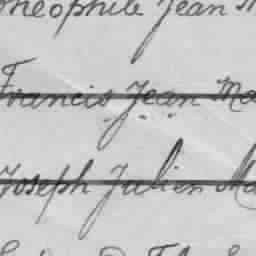 Theophile Jean
Francis Jean Ma
Joseph Julien Ma